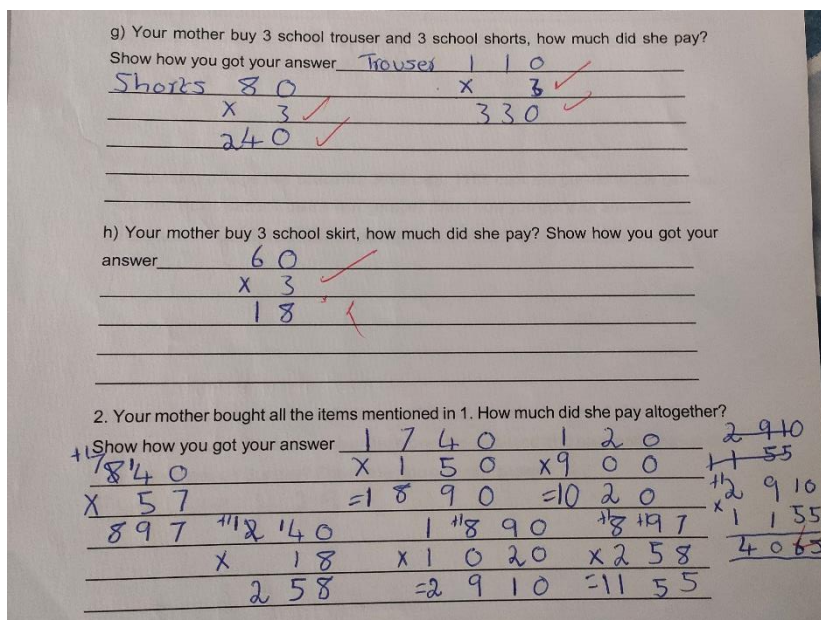 g) Your mother buy 3 school trouser and 3 school shorts, how much did she pay?
Show how you got your answer Trouser 1 1 0
Shorts 8 0 x 3
x 3 3 3 0
2 4 0
h) Your mother buy 3 school skirt, how much did she pay? Show how you got your
answer 6 0
x 3
1 8
2. Your mother bought all the items mentioned in 1. How much did she pay altogether?
Show how you got your answer 1 7 4 0 1 2 0 2 9 10
+1 7 8 1 4 0 x 1 5 0 x 9 0 0 1 1 55
x 5 7 =1 8 9 0 =10 2 0 +1 2 9 10
8 9 7 +1 1 2 1 4 0 1 +1 8 9 0 +1 8 +1 9 7 x 1 1 55
x 1 8 x 1 0 2 0 x 2 5 8 4 0 6 5
2 5 8 =2 9 1 0 =11 5 5